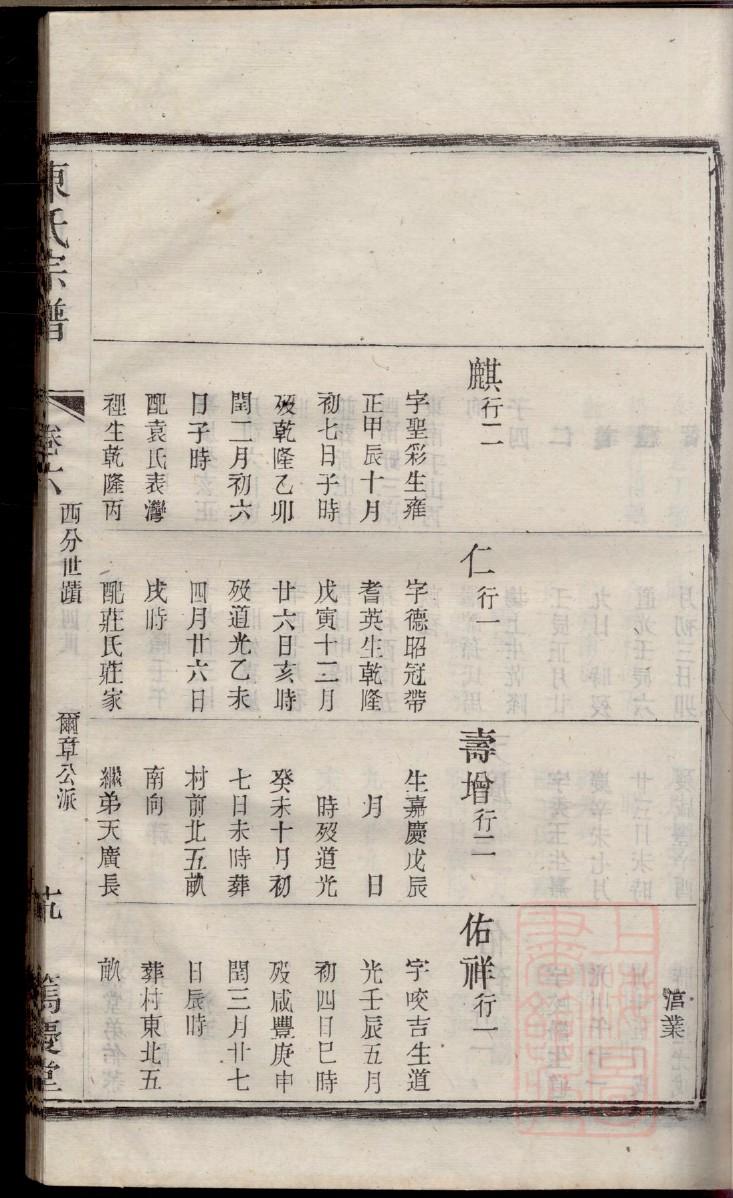 麒行二
字聖彩生雍
正甲辰十月
初七日子時
歿乾隆乙卯
閏二月初六
日子時
配袁氏表灣
裡生乾隆丙
仁行一
字德昭冠帶
耆英生乾隆
戊寅十二月
廿六日亥時
歿道光乙未
四月廿六日
戌時
配莊氏莊家
壽增行二
生嘉慶戊辰
月　日
時歿道光
癸未十月初
七日未時葬
村前北五畝
南向
繼弟天廣長
業
佑祥行一
字咬吉生道
光壬辰五月
初四日巳時
歿咸豐庚申
閏三月廿七
日辰時
葬村東北五
畝
陳氏宗譜
卷六
西分世蹟
爾章公派
篤慶堂